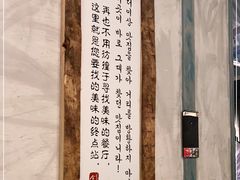 더이상 맛집을 찾아 거리를 방황하지 마라,
이곳이 바로 그대가 찾던 맛집이니라!
再也不用彷徨于寻找美味的餐厅,
这里就是您要找的美味的终点站。